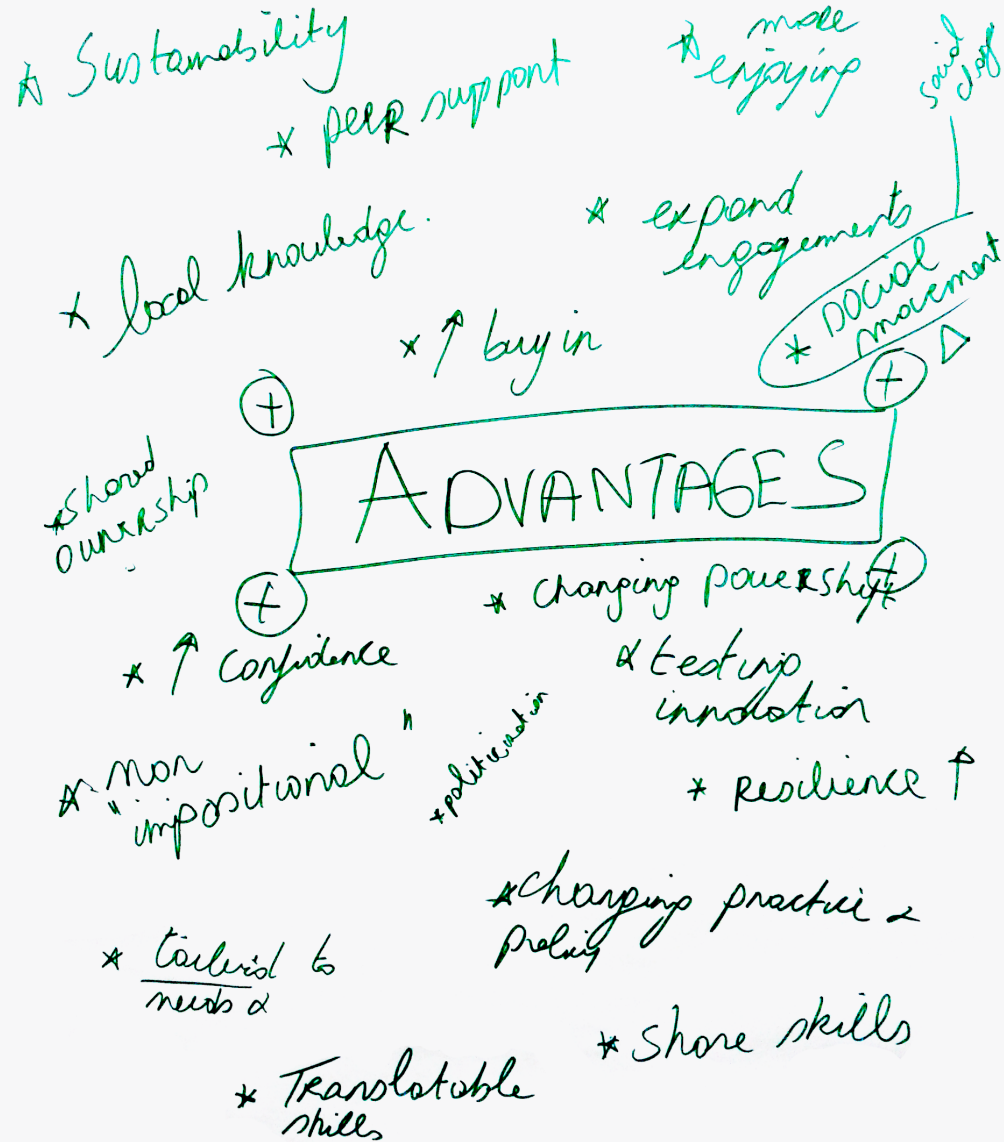 * Sustainability
* peer support
* more
enjoying
* expand
engagements
* local knowledge.
* social
movement
* ↑ buy in
+
+
* shared
ownership
ADVANTAGES
+
+
* changing powershift
* ↑ confidence
* testing
innovation
* non
"impositional"
* politicisation
* Resilience ↑
* changing practice &
policy
* tailored to
needs &
* share skills
* Translatable
skills